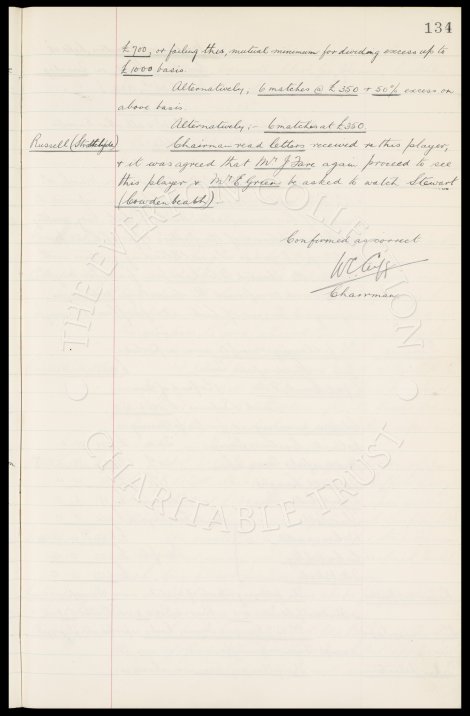 134
£700, or failing this, mutual minimum for dividing excess up to
£1000 basis.
Alternatively, 6 matches @ £350 + 50% excess on
above basis.
Alternatively:- 6 matches at £350.
Russell (Strathclyde)
Chairman read letters received re this player,
& it was agreed that Mr J Fare again proceed to see
this player & Mr E Green be asked to watch Stewart
(Cowdenbeath)
Confirmed as correct
WC Cuff
Chairman
THE EVERTON COLLECTION
CHARITABLE TRUST